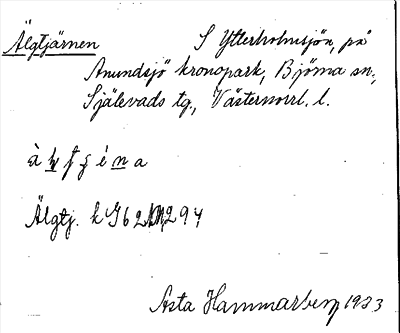 Älgtjärnen S Ytterholmsjön, på
Anundsjö kronopark, Björna sn,
Själevads tg., Västernorrl. l.
Älgtj. k G62 294
Asta Hammarberg 1933